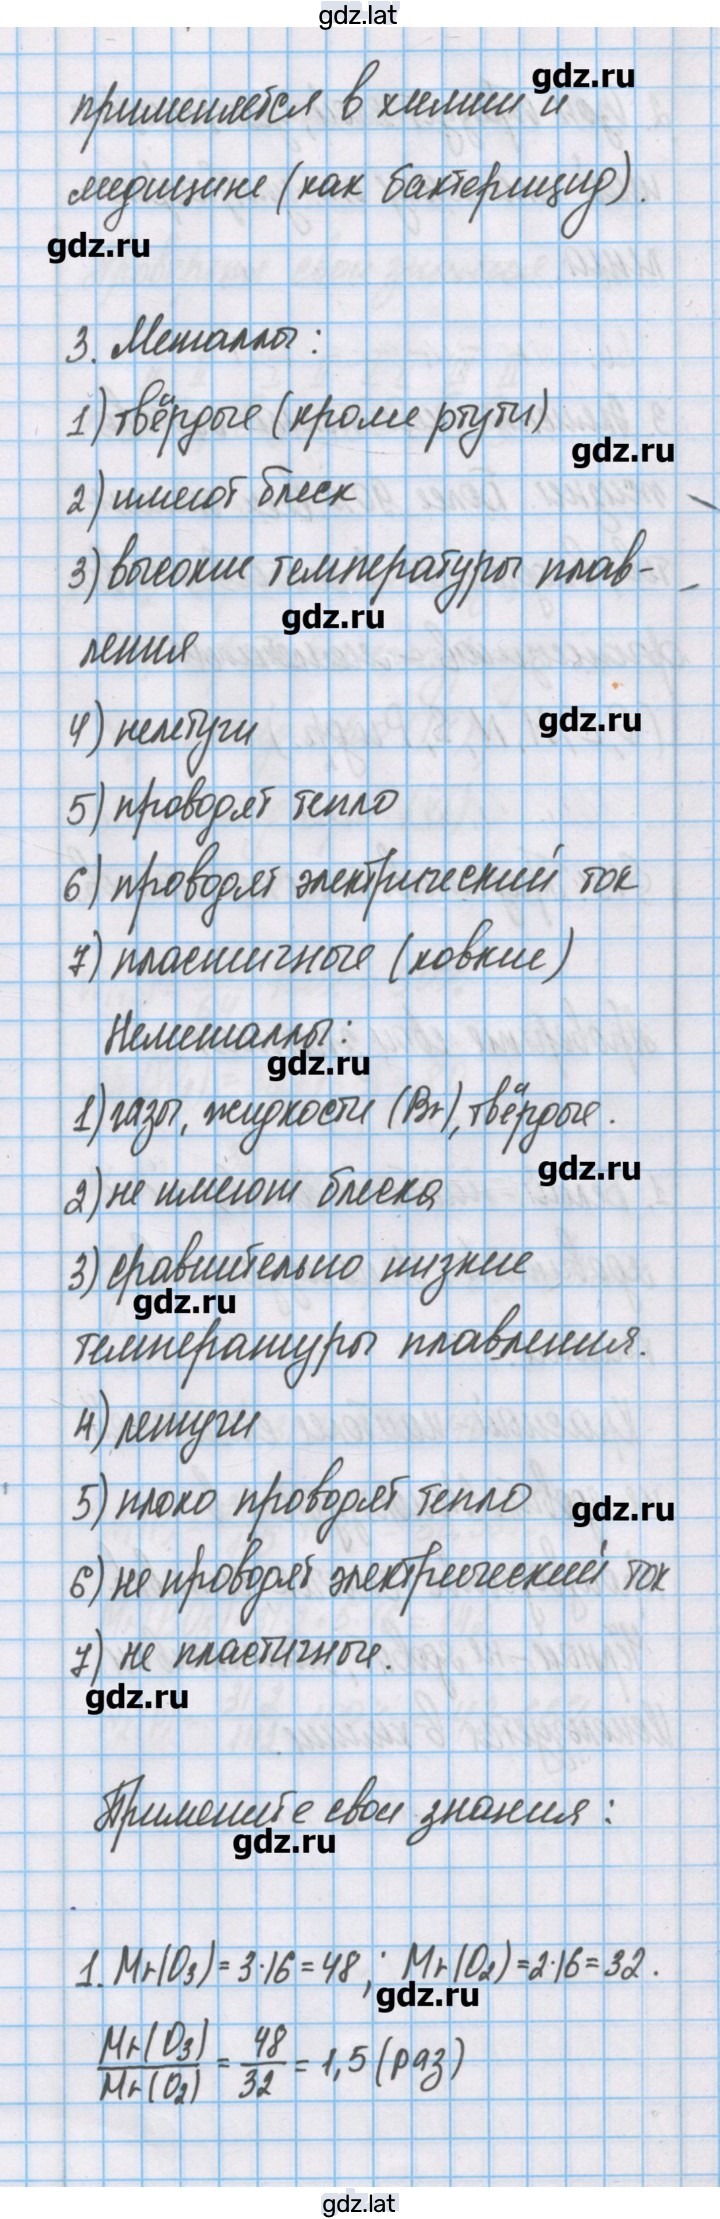 gdz.lat
применяется в химии и
gdz.ru
медицине (как бактерицид).
gdz.ru
3. Металлы:
1) твёрдые (кроме ртути)
gdz.ru
2) имеют блеск
3) высокие температуры плав-
gdz.ru
ления
gdz.ru
4) нелетуги
5) проводят тепло
6) проводят электрический ток
7) пластичные (ковкие)
Неметаллы:
gdz.ru
1) газы, жидкости (Br), твёрдые.
gdz.ru
2) не имеют блеска
3) сравнительно низкие
gdz.ru
температуры плавления.
4) летуги
5) плохо проводят тепло
gdz.ru
6) не проводят электрический ток
7) не пластичные.
gdz.ru
Примените свои знания:
gdz.ru
1. Mr(O3) = 3·16 = 48; Mr(O2) = 2·16 = 32.
gdz.ru
Mr(O3)/Mr(O2) = 48/32 = 1,5 (раз)
gdz.lat